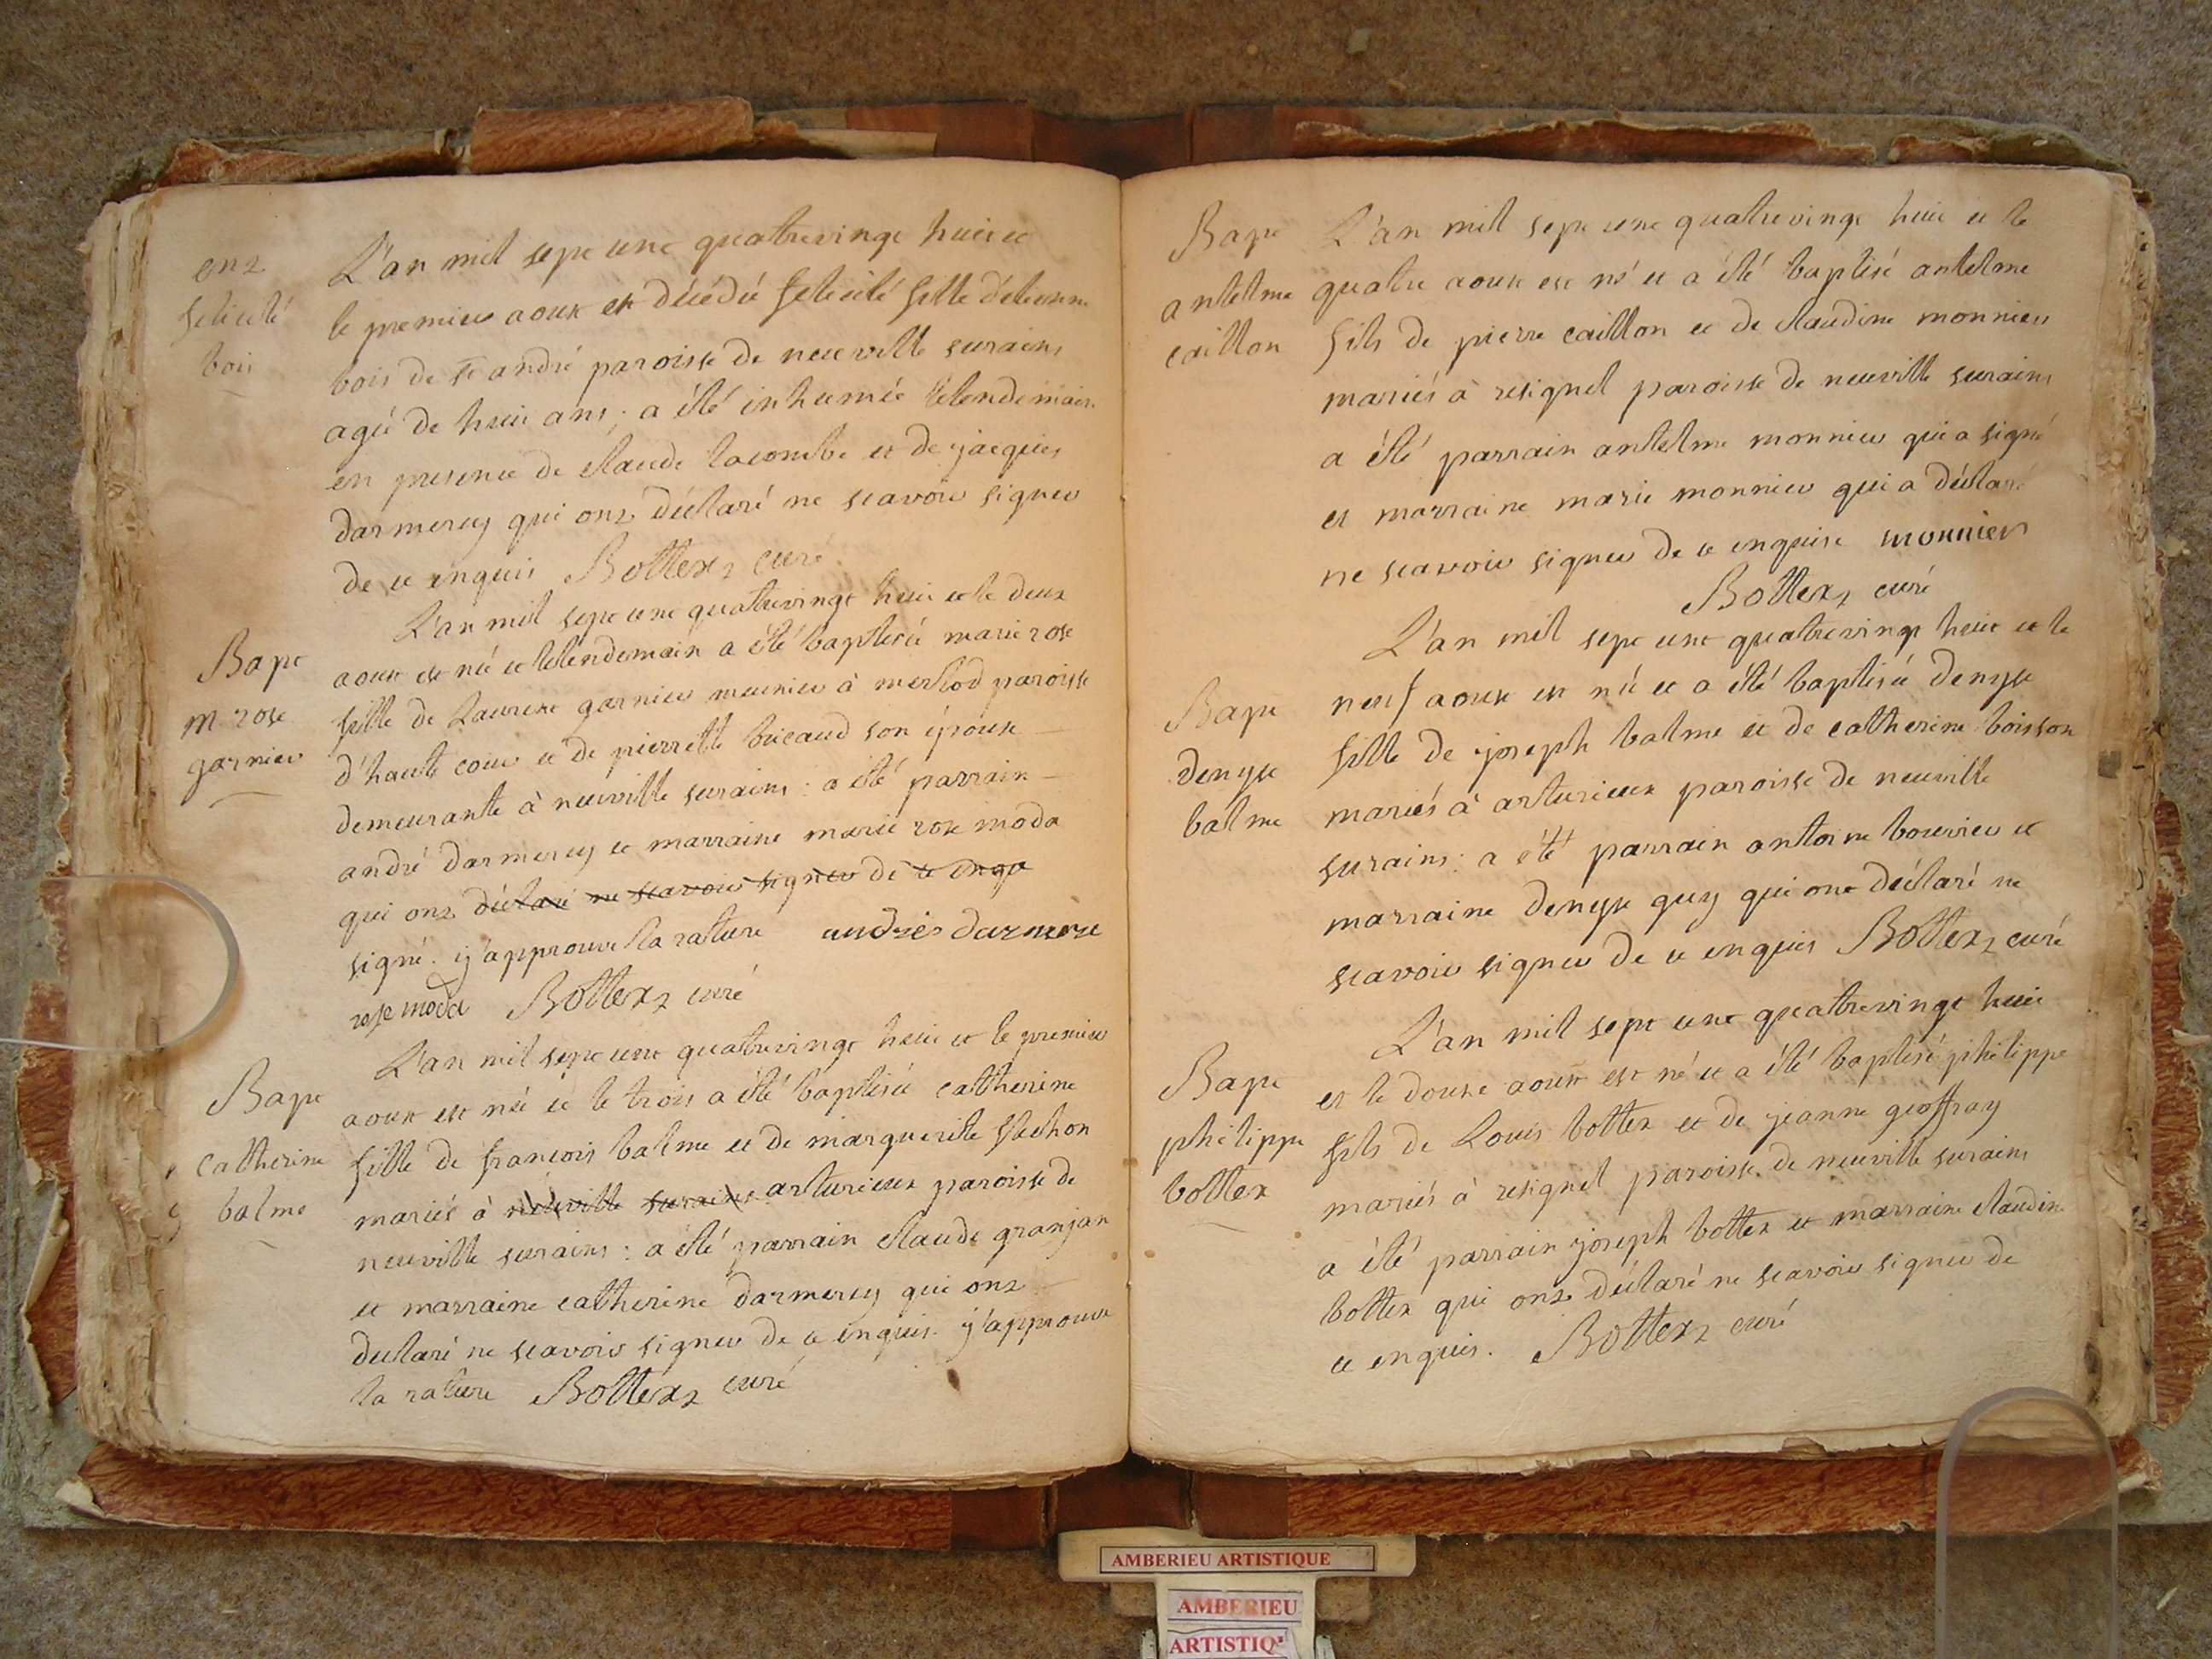 ent
felicité
bois
L'an mil sept cent quatrevingt huit et
le premier aoust est décédée felicité fille d'etienne
bois de st andré paroisse de neuville surains
agée de huit ans ; a été inhumée le lendemain
en presence de claude lacombe et de jacques
darmerey qui ont déclaré ne scavoir signer
de ce enquis Bottex curé
Bapt
m. rose
garnier
L'an mil sept cent quatrevingt huit et le deux
aoust est née et le lendemain a été baptisée marie rose
fille de Laurent garnier meunier à merlod paroisse
d'haute cour et de pierrette buicaud son épouse
demeurante à neuville surains : a été parrain
andré darmerey et marraine marie rose moda
qui ont déclaré ne scavoir signer de ce enqu
signé. j'approuve la rature andrés darmere
rose moda Bottex curé
Bapt
catherine
balme
L'an mil sept cent quatrevingt huit et le premier
aoust est née et le trois a été baptisée catherine
fille de francois balme et de marguerite flachon
mariés à neuville surains arturieux paroisse de
neuville surains : a été parrain claude granjan
et marraine catherine darmerey qui ont
declaré ne scavoir signer de ce enquis. j'approuve
la rature Bottex curé
Bapt
antelme
caillon
L'an mil sept cent quatrevingt huit et le
quatre aoust est né et a été baptisé antelme
fils de pierre caillon et de claudine monnier
mariés à resignel paroisse de neuville surains
a été parrain antelme monnier qui a signé
et marraine marie monnier qui a déclaré
ne scavoir signer de ce enquise monnier
Bottex curé
Bapt
denyse
balme
L'an mil sept cent quatrevingt huit et le
neuf aoust est née et a été baptisée denyse
fille de joseph balme et de catherine boisson
mariés à arturieux paroisse de neuville
surains : a été parrain antoine bouvier et
marraine denyse guy qui ont déclaré ne
scavoir signer de ce enquis Bottex curé
Bapt
philippe
bottex
L'an mil sept cent quatrevingt huit
et le douze aoust est né et a été baptisé philippe
fils de Louis bottex et de jeanne geoffray
mariés à resignel paroisse de neuville surains
a été parrain joseph bottex et marraine claudine
bottex qui ont déclaré ne scavoir signer de
ce enquis. Bottex curé
AMBERIEU ARTISTIQUE
AMBERIEU
ARTISTIQ'